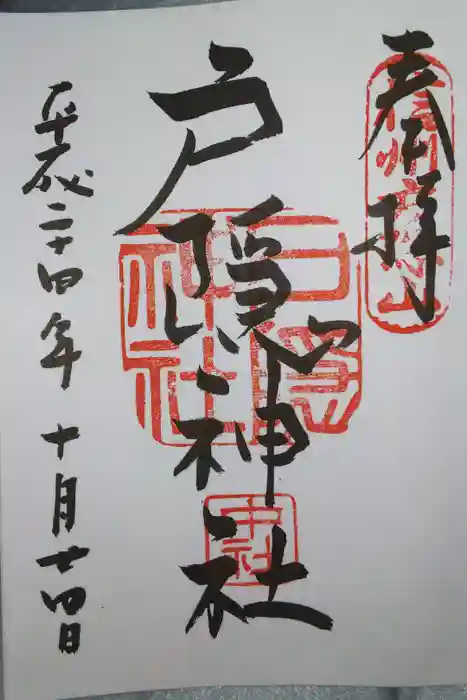 奉拝
信州戸隠山
戸隠神社
戸隠神社
中社
平成二十四年十月廿四日